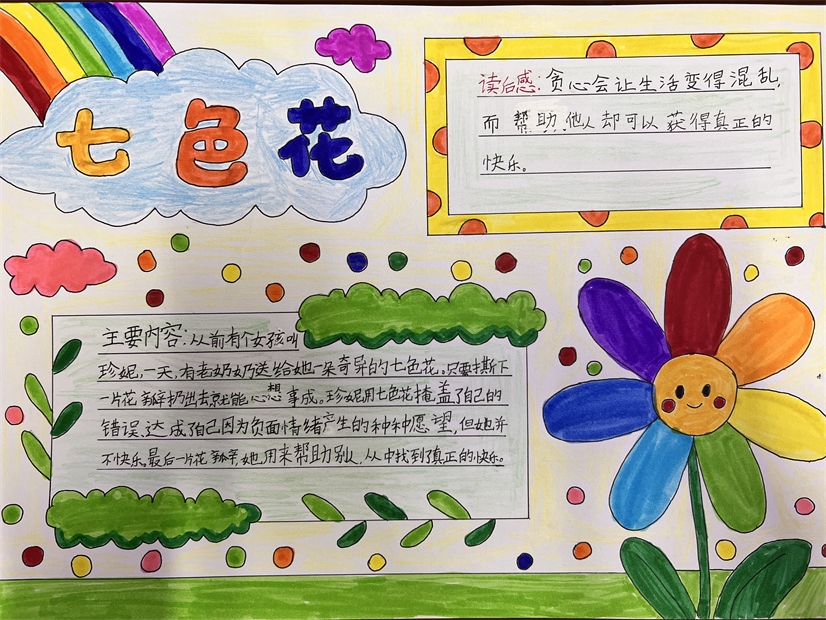 七色花
读后感：贪心会让生活变得混乱，
而帮助他人却可以获得真正的
快乐。
主要内容：从前有个女孩叫
珍妮，一天，有老奶奶送给她一朵奇异的七色花。只要撕下
一片花瓣扔出去就能心想事成。珍妮用七色花掩盖了自己的
错误、达成了自己因为负面情绪产生的种种愿望，但她并
不快乐。最后一片花瓣，她用来帮助别人，从中找到了真正的快乐。